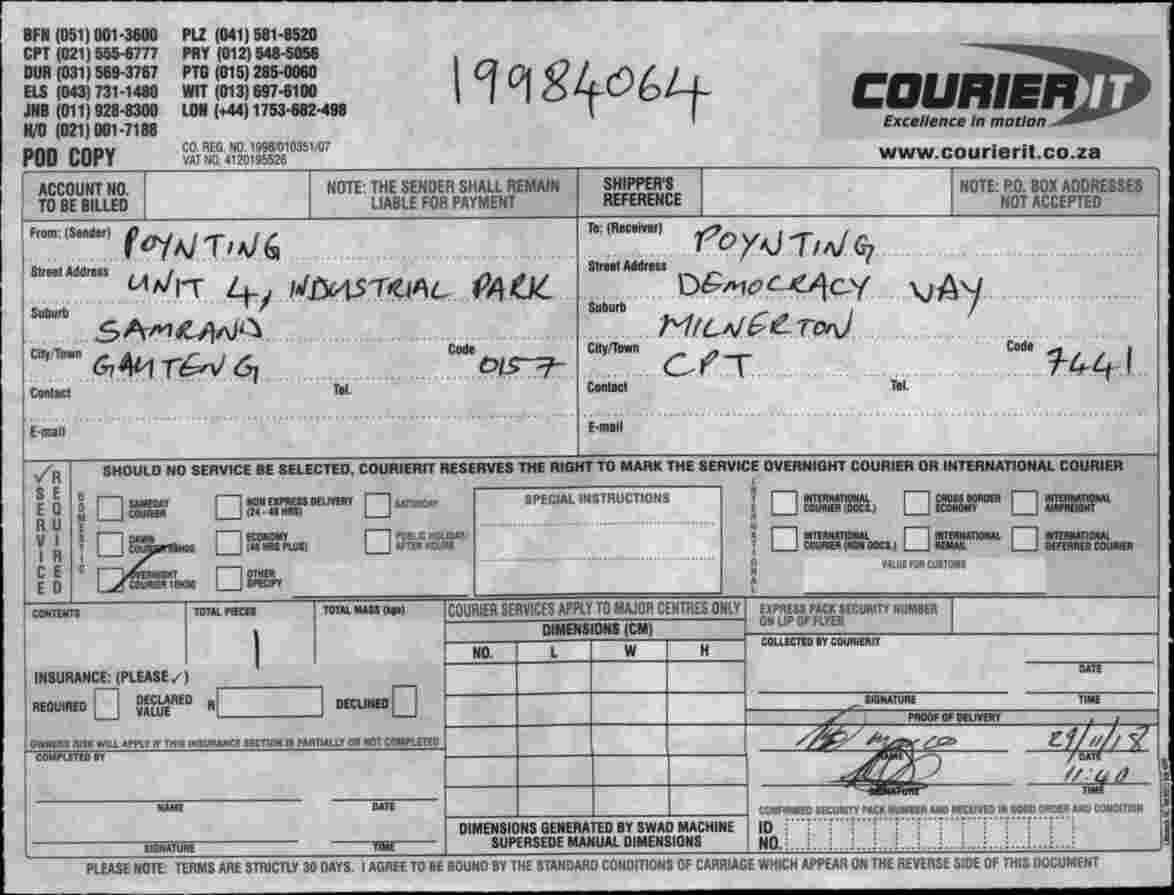 BFN (051) 001-3600 PLZ (041) 581-8520
CPT (021) 555-6777 PRY (012) 548-5056
DUR (031) 569-3767 PTG (015) 285-0060
ELS (043) 731-1480 WIT (013) 697-6100
JNB (011) 928-8300 LON (+44) 1753-682-498
H/O (021) 001-7188
POD COPY
CO. REG. NO. 1998/010351/07
VAT NO. 4120195526
19984064
COURIER IT
Excellence in motion
www.courierit.co.za
ACCOUNT NO. TO BE BILLED
NOTE: THE SENDER SHALL REMAIN LIABLE FOR PAYMENT
SHIPPER'S REFERENCE
NOTE: P.O. BOX ADDRESSES NOT ACCEPTED
From: (Sender) POYNTING
Street Address UNIT 4, INDUSTRIAL PARK
Suburb SAMRAND
City/Town GAUTENG Code 0157
Contact Tel.
E-mail
To: (Receiver) POYNTING
Street Address DEMOCRACY WAY
Suburb MILNERTON
City/Town CPT Code 7441
Contact Tel.
E-mail
✓ SERVICE REQUIRED
SHOULD NO SERVICE BE SELECTED, COURIERIT RESERVES THE RIGHT TO MARK THE SERVICE OVERNIGHT COURIER OR INTERNATIONAL COURIER
DOMESTIC
SAMEDAY COURIER
NON EXPRESS DELIVERY (24 - 48 HRS)
SATURDAY
DAWN COURIER
ECONOMY (48 HRS PLUS)
PUBLIC HOLIDAY AFTER HOURS
OVERNIGHT COURIER 10H30
OTHER SPECIFY
SPECIAL INSTRUCTIONS
INTERNATIONAL
INTERNATIONAL COURIER (DOCS.)
CROSS BORDER ECONOMY
INTERNATIONAL AIRFREIGHT
INTERNATIONAL COURIER (NON DOCS.)
INTERNATIONAL REMAIL
INTERNATIONAL DEFERRED COURIER
VALUE FOR CUSTOMS
CONTENTS
TOTAL PIECES
1
TOTAL MASS (kgs)
INSURANCE: (PLEASE ✓)
REQUIRED DECLARED VALUE R DECLINED
OWNERS RISK WILL APPLY IF THIS INSURANCE SECTION IS PARTIALLY OR NOT COMPLETED
COMPLETED BY
NAME DATE
SIGNATURE TIME
COURIER SERVICES APPLY TO MAJOR CENTRES ONLY
DIMENSIONS (CM)
NO. L W H
DIMENSIONS GENERATED BY SWAD MACHINE
SUPERSEDE MANUAL DIMENSIONS
EXPRESS PACK SECURITY NUMBER ON LIP OF FLYER
COLLECTED BY COURIERIT
DATE
SIGNATURE TIME
PROOF OF DELIVERY
29/11/18
NAME DATE
11:40
SIGNATURE TIME
CONFIRMED SECURITY PACK NUMBER AND RECEIVED IN GOOD ORDER AND CONDITION
ID NO.
PLEASE NOTE: TERMS ARE STRICTLY 30 DAYS. I AGREE TO BE BOUND BY THE STANDARD CONDITIONS OF CARRIAGE WHICH APPEAR ON THE REVERSE SIDE OF THIS DOCUMENT